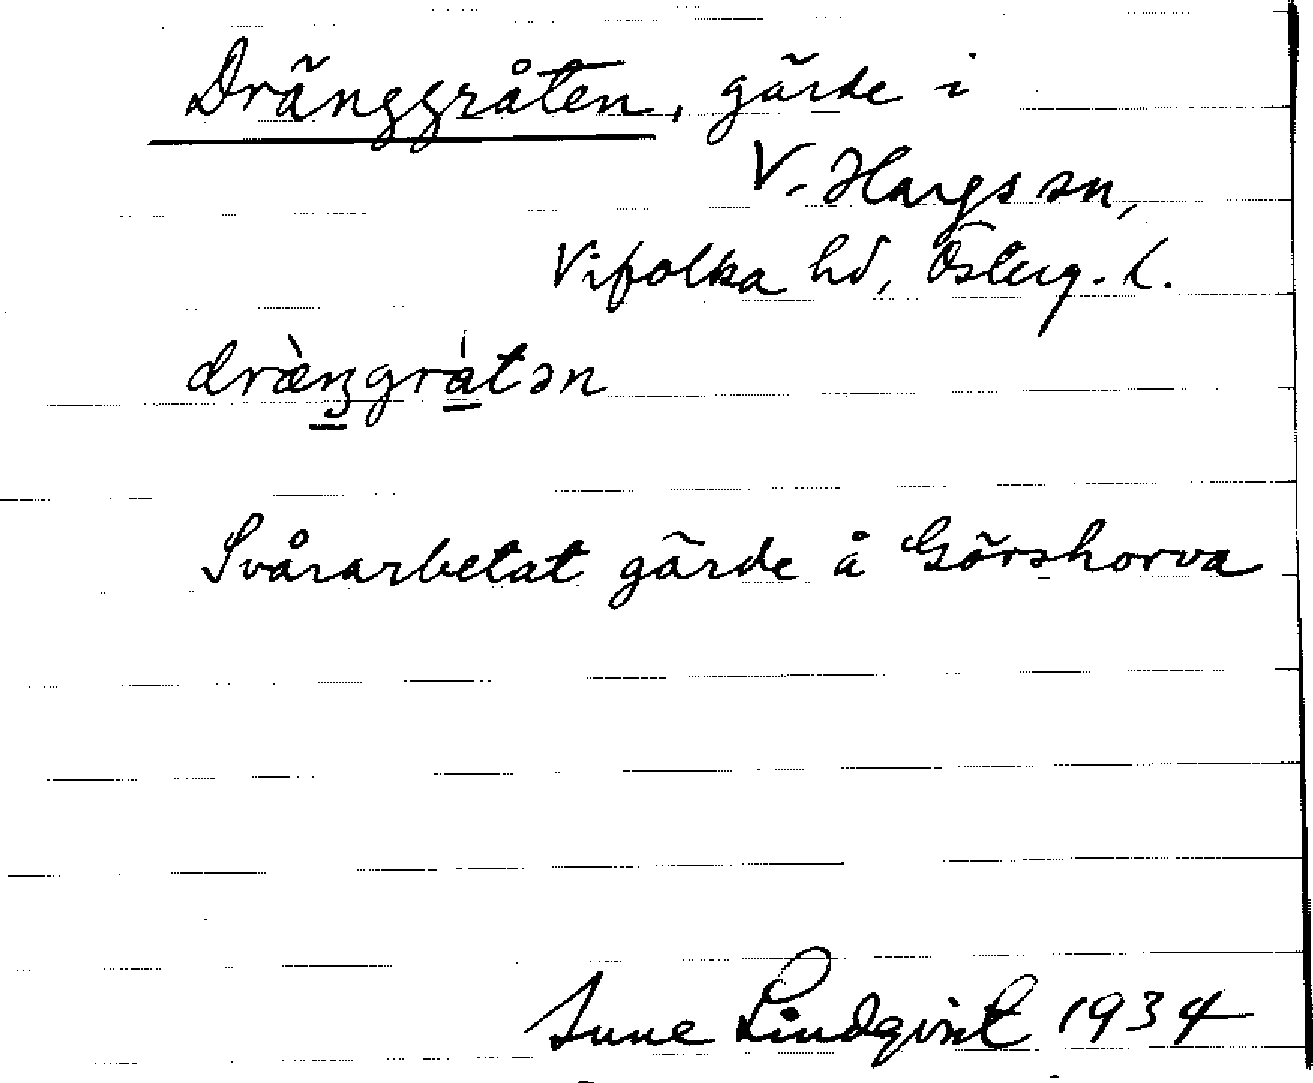 Dränggråten, gärde i
V. Hargs sn,
Vifolka hd, Österg. l.
dræ̀ŋgrátən
Svårarbetat gärde å Görshorva
Sune Lindqvist 1934